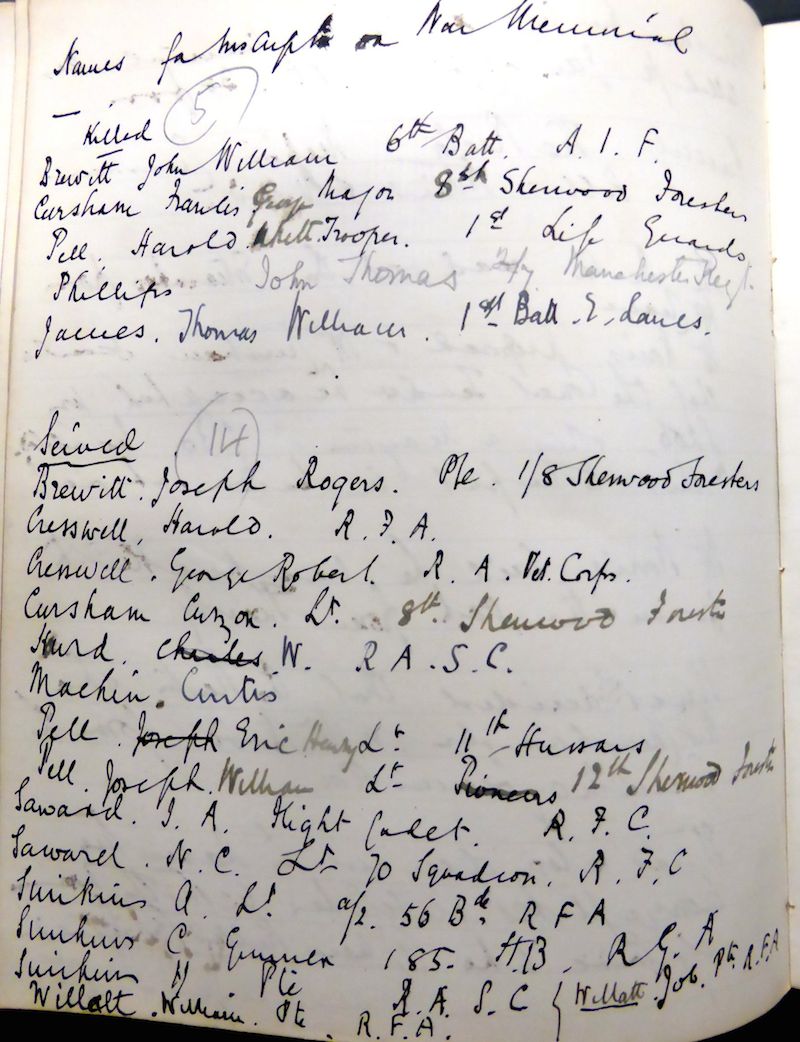 Names for Inscript on War Memorial
Killed 5
Brewitt John William 6th Batt. A. I. F.
Cursham Francis George Major 8th Sherwood Foresters
Pell. Harold Trooper. 1st Life Guards
Phillips John Thomas Manchester Regt.
James. Thomas William. 1st Batt. E. Lancs.
Served 14
Brewitt. Joseph Rogers. Pte. 1/8 Sherwood Foresters
Cresswell, Harold. R. F. A.
Cresswell. George Robert. R. A. Vet. Corps.
Cursham Curzon. Lt. 8th Sherwood Forests
Hurd. Charles W. R A. S. C.
Machin. Curtis
Pell. Joseph Eric Henry Lt. 11th Hussars
Pell. Joseph. William Lt Pioneers 12th Sherwood Forests
Saward. I. A. Flight Cadet. R. F. C.
Saward. N. C. Lt 70 Squadron. R. F. C
Simkins A. Lt. a/2. 56 Bde R F A
Simkins C Gunner 185. H.B. R. G. A
Simkins H Pte R. A. S. C
Willatt. William. Pte. R. F. A. { Willatt Job. Pte. R.F.A